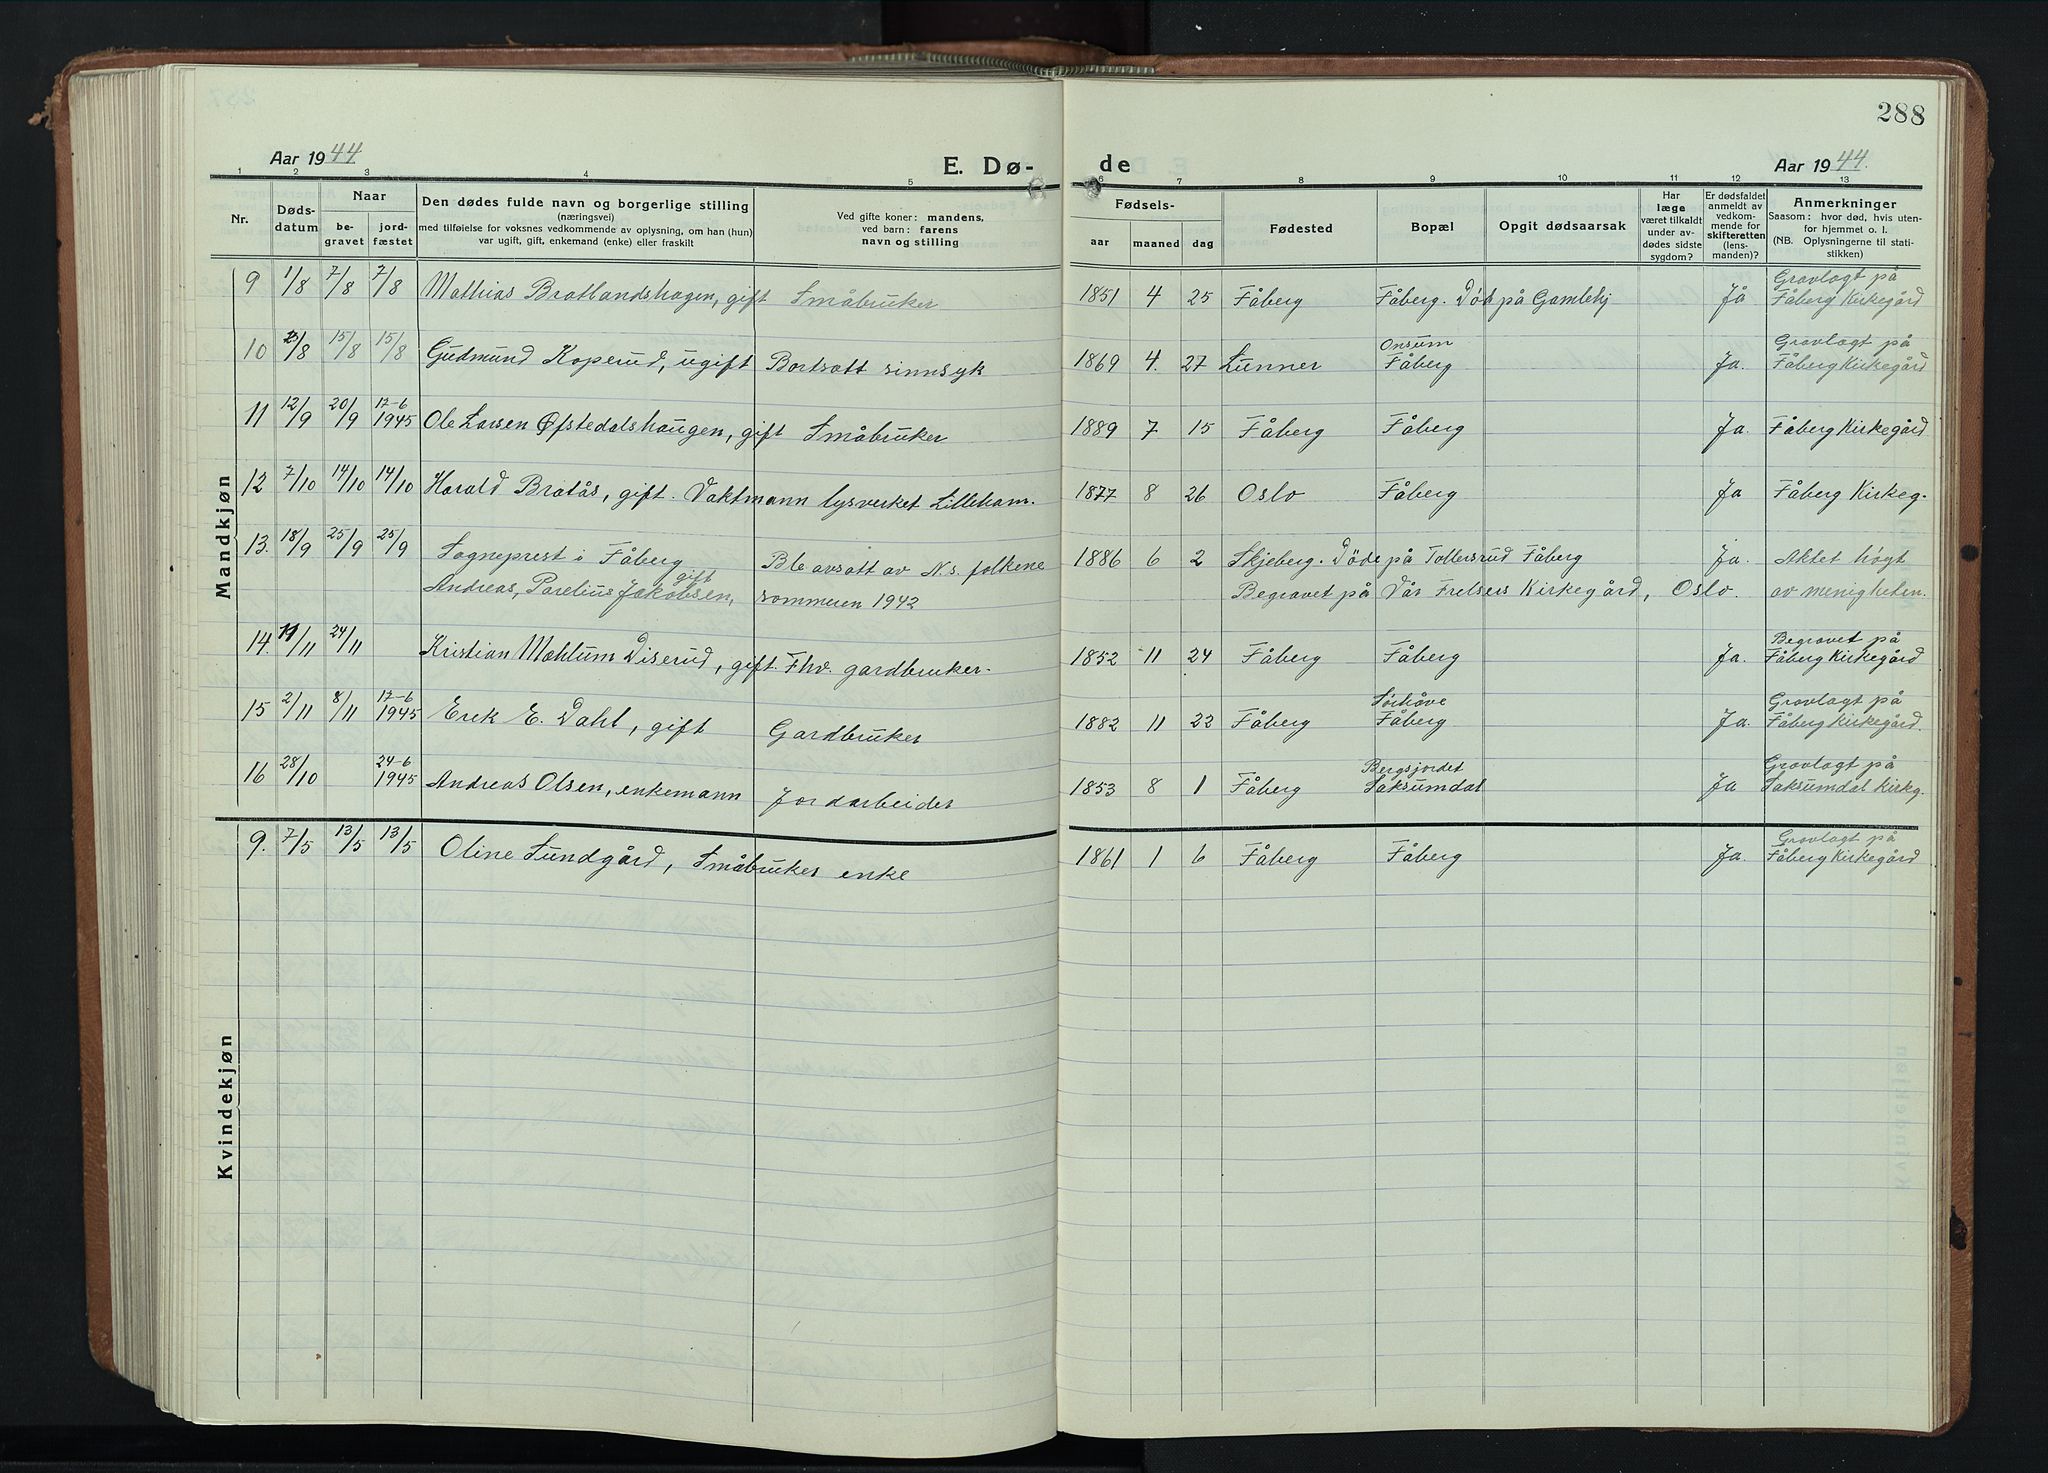 288
Aar 1944
E. Dø-
de
Aar 1944.
1 2 3 4 5 6 7 8 9 10 11 12 13
Nr.
Døds-
datum
Naar
be-
gravet
jord-
fæstet
Den dødes fulde navn og borgerlige stilling
(næringsvei)
med tilføielse for voksnes vedkommende av oplysning, om han (hun)
var ugift, gift, enkemand (enke) eller fraskilt
Ved gifte koner: mandens,
ved barn: farens
navn og stilling
Fødsels-
aar
maaned
dag
Fødested
Bopæl
Opgit dødsaarsak
Har
læge
været tilkaldt
under av-
dødes sidste
sygdom?
Er dødsfaldet
anmeldt av
vedkom-
mende for
skifteretten
(lens-
manden)?
Anmerkninger
Saasom: hvor død, hvis uten-
for hjemmet o. l.
(NB. Oplysningerne til stati-
stikken)
Mandkjøn
9 1/8 7/8 7/8 Mathias Bratlandshagen, gift Småbruker 1851 4 25 Fåberg Fåberg. Død på Gamlehj Ja Gravlagt på
Fåberg Kirkegård
10 /8 15/8 15/8 Gudmund Koperud, ugift Bortsatt sinnsyk 1869 4. 27 Lunner Onsum
Fåberg Ja. Gravlagt på
Fåberg Kirkegård
11 12/9 20/9 17-6
1945 Ole Larsen Øfstedalshaugen, gift Småbruker 1889 7. 15 Fåberg Fåberg Ja. Fåberg Kirkegård
12 7/10 14/10 14/10 Harald Bratås, gift. Vaktmann lysverket Lilleham. 1877 8 26 Oslo Fåberg Ja Fåberg Kirkeg.
13. 18/9 25/9 25/9 Sogneprest i Fåberg Ble avsatt av N.s. folkene 1886 6 2 Skjeberg. Døde på Tollersrud Fåberg Ja. Aktet høgt
gift
Andreas, Parelius Jakobsen, sommeren 1942 Begravet på Vår Frelsers Kirkegård, Oslo. av menigheten.
14. /11 24/11 Kristian Mæhlum Diserud, gift Fhv. gardbruker. 1852 11 24 Fåberg Fåberg Ja. Begravet på
Fåberg Kirkegård
15 2/11 8/11 17-6
1945 Erik E. Dahl, gift Gardbruker 1882 11 22 Fåberg Sørhove
Fåberg Ja. Gravlagt på
Fåberg Kirkegård.
16 28/10 24-6
1945 Andreas Olsen, enkemann Jordarbeider 1853 8 1 Fåberg Bergsjordet
Saksumdal Ja Gravlagt på
Saksumdal Kirkg.
Kvindekjøn
9. 7/5 13/5 13/5 Oline Sundgård, Småbruker enke 1861 1 6 Fåberg Fåberg Ja. Gravlagt på
Fåberg Kirkegård